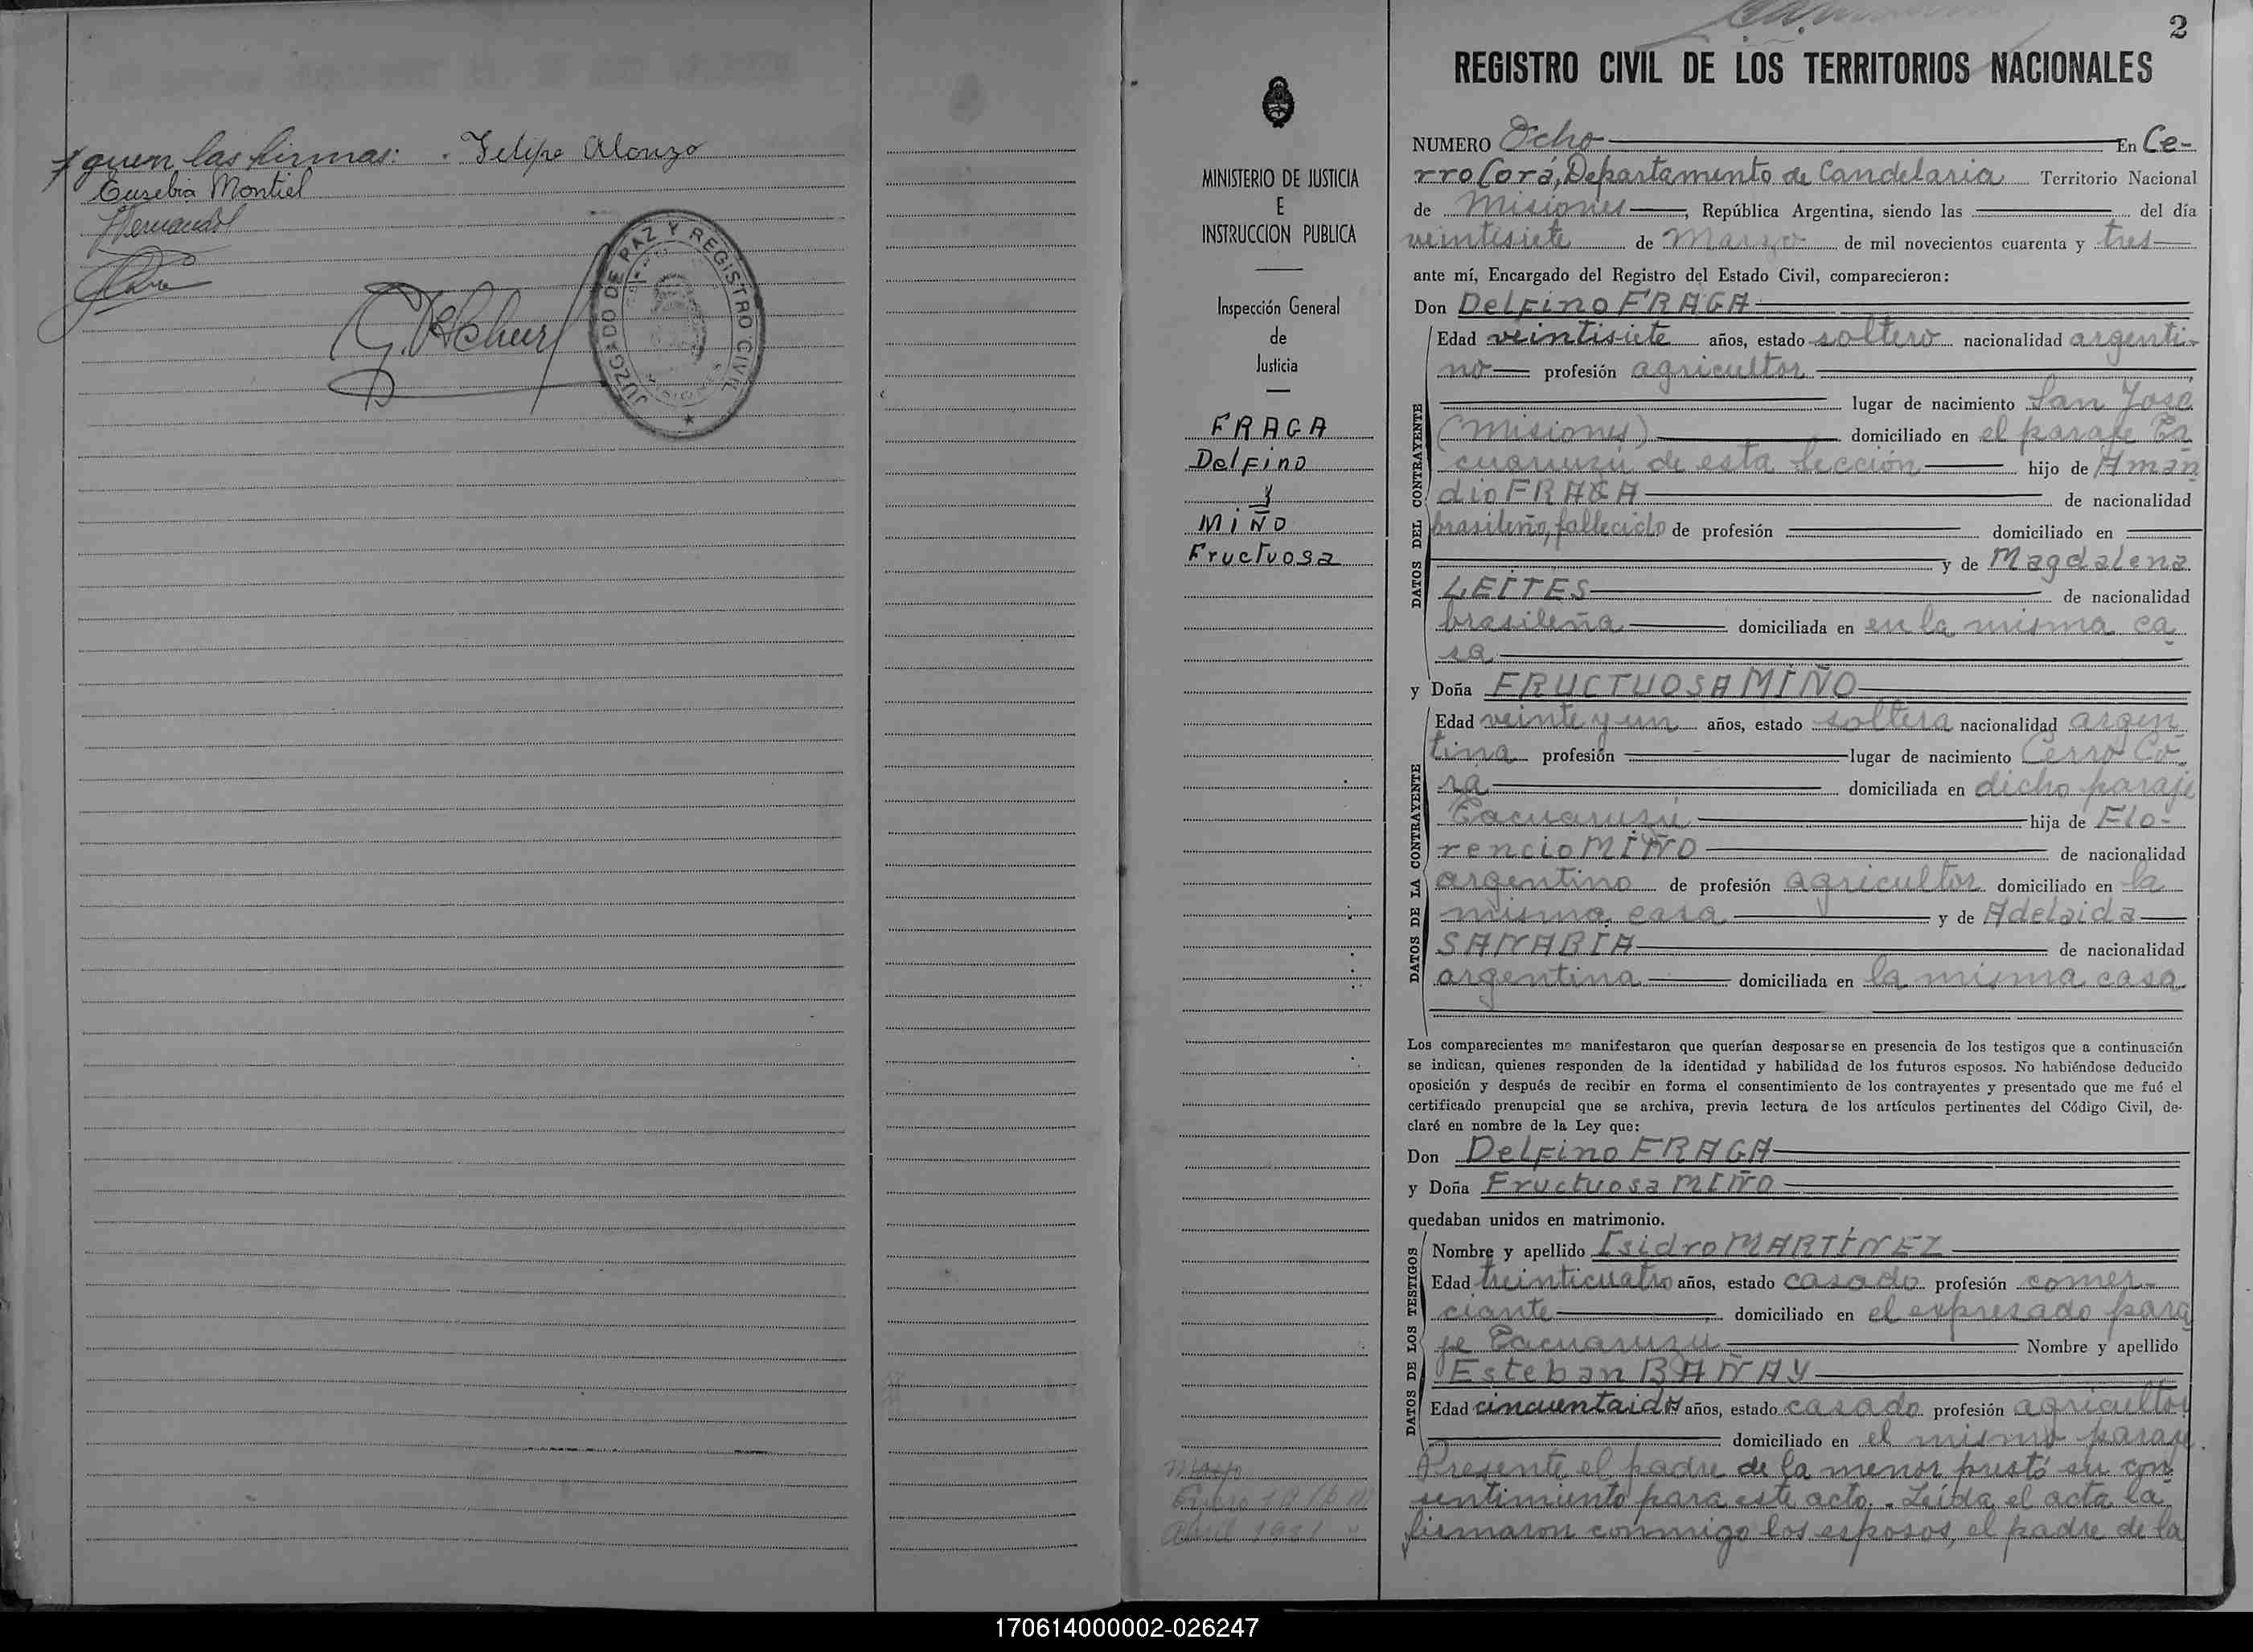 guen las firmas: Felipe Alonzo
Eusebia Montiel
JUZGADO DE PAZ Y REGISTRO CIVIL
MINISTERIO DE JUSTICIA
E
INSTRUCCION PUBLICA
Inspección General
de
Justicia
FRAGA
Delfino
y
MIÑO
Fructuosa
2
REGISTRO CIVIL DE LOS TERRITORIOS NACIONALES
NUMERO Ocho En Ce-
rro Corá, Departamento de Candelaria Territorio Nacional
de Misiones, República Argentina, siendo las del día
veintisiete de Marzo de mil novecientos cuarenta y tres
ante mí, Encargado del Registro del Estado Civil, comparecieron:
Don Delfino FRAGA
Edad veintisiete años, estado soltero nacionalidad argenti-
no profesión agricultor
lugar de nacimiento San José
(Misiones) domiciliado en el paraje Ta
cuaruzú de esta Sección hijo de Aman
dio FRAGA de nacionalidad
brasileño, fallecido de profesión domiciliado en
y de Magdalena
LEITES de nacionalidad
brasileña domiciliada en en la misma ca
sa
y Doña FRUCTUOSA MIÑO
Edad veinte y un años, estado soltera nacionalidad argen
tina profesión lugar de nacimiento Cerro Co
rá domiciliada en dicho paraje
Tacuaruzú hija de Flo-
rencio MIÑO de nacionalidad
argentino de profesión agricultor domiciliado en la
misma casa y de Adelaida
SANABIA de nacionalidad
argentina domiciliada en la misma casa
DATOS DEL CONTRAYENTE
DATOS DE LA CONTRAYENTE
Los comparecientes me manifestaron que querían desposarse en presencia de los testigos que a continuación
se indican, quienes responden de la identidad y habilidad de los futuros esposos. No habiéndose deducido
oposición y después de recibir en forma el consentimiento de los contrayentes y presentado que me fué el
certificado prenupcial que se archiva, previa lectura de los artículos pertinentes del Código Civil, de-
claré en nombre de la Ley que:
Don Delfino FRAGA
y Doña Fructuosa MIÑO
quedaban unidos en matrimonio.
DATOS DE LOS TESTIGOS
Nombre y apellido Isidro MARTÍNEZ
Edad treinticuatro años, estado casado profesión comer-
ciante domiciliado en el expresado para
je Tacuaruzú Nombre y apellido
Esteban BAÑAY
Edad cincuentaidos años, estado casado profesión agricultor
domiciliado en el mismo paraje.
Presente el padre de la menor prestó su con
sentimiento para este acto. Leída el acta la
firmaron conmigo los esposos, el padre de la
170614000002-026247